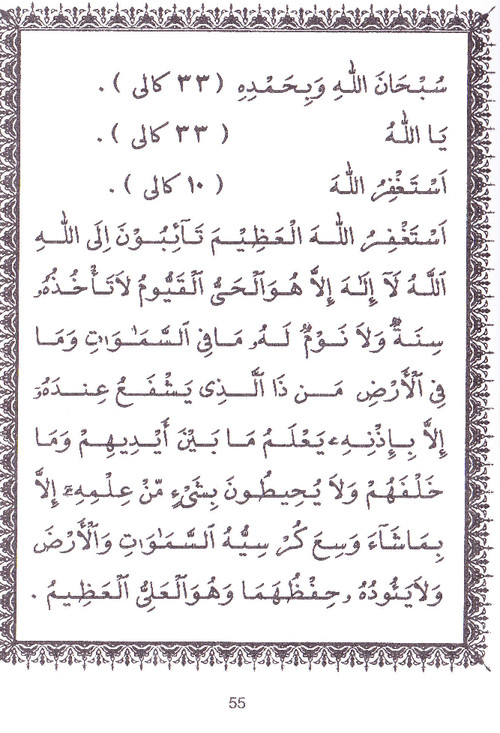 سُبْحَانَ اللهِ وَبِحَمْدِهِ ( ٣٣ كالى ) .
يَا اللهُ ( ٣٣ كالى ) .
اَسْتَغْفِرُ اللهَ ( ١٠ كالى ) .
اَسْتَغْفِرُ اللهَ الْعَظِيْمَ تَآئِبُوْنَ اِلَى اللهِ
اَللَّهُ لَآ إِلَهَ إِلاَّ هُوَالْحَىُّ ٱلْقَيُّومُ لاَتَأْخُذُهُۥ
سِنَةٌ وَلاَ نَوْمٌ لَهُۥ مَافِى ٱلسَّمَـٰوَٰتِ وَمَا
فِى ٱلْأَرْضِ مَـن ذَا ٱلَّـذِى يَشْفَـعُ عِنـدَهُۥٓ
إِلاَّ بِـإِذْنِـهِۦ يَعْلَـمُ مَـا بَـيْنَ أَيْـدِيهِـمْ وَمَـا
خَلْفَهُمْ وَلاَ يُحِيطُونَ بِشَىْءٍ مِّنْ عِلْمِهِۦٓ إِلاَّ
بِمَاشَآءَ وَسِعَ كُرْ سِيُّهُ ٱلسَّمَـٰوَٰتِ وَٱلْأَرْضَ
وَلاَيَئُودُهُۥ حِفْظُهُمَا وَهُوَٱلْعَلِىُّ ٱلْعَظِيمُ .
55